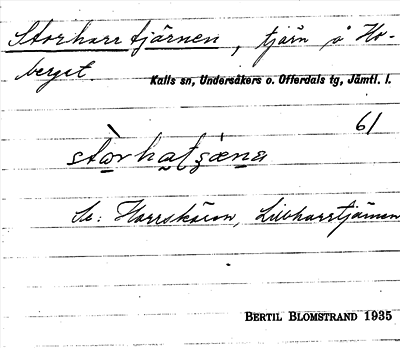 Storharrtjärnen, tjärn å Ho-
berget
Kalls sn, Undersåkers o. Offerdals tg, Jämtl. l.
61
Se: Harrskären, Lillharrtjärnen
BERTIL BLOMSTRAND 1935